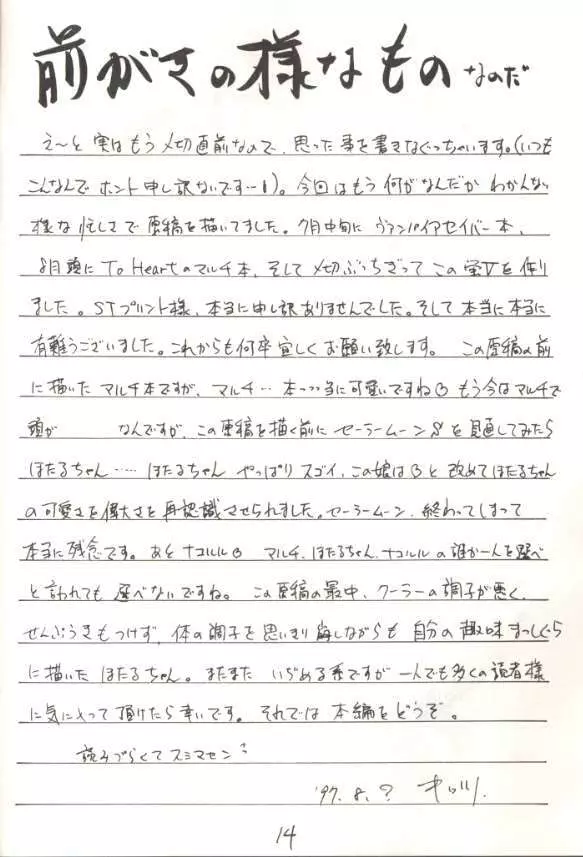 前がきの様なものなのだ
え〜と実はもう〆切直前なので、思った事を書きなぐっちゃいます。(いつも
こんなんでホント申し訳ないです…!)。今回はもう何がなんだかわかんない
様な忙しさで原稿を描いてました。7月中旬にヴァンパイアセイバー本、
8月頭にTo Heartのマルチ本、そして〆切ぶっちぎってこの蛍Vを作り
ました。STプリント様、本当に申し訳ありませんでした。そして本当に本当に
有難うございました。これからも何卒宜しくお願い致します。 この原稿の前
に描いたマルチ本ですが、マルチ…本っっ当に可愛いですね もう今はマルチで
頭が なんですが、この原稿を描く前にセーラームーンSを見直してみたら
ほたるちゃん……ほたるちゃんやっぱりスゴイ、この娘は と改めてほたるちゃん
の可愛さを偉大さを再認識させられました。セーラームーン、終わってしまって
本当に残念です。あとナコルル マルチ、ほたるちゃん、ナコルルの誰か一人を選べ
と言われても選べないですね。 この原稿の最中、クーラーの調子が悪く、
せんぷうきもつけず、体の調子を思いきり崩しながらも自分の趣味まっしぐら
に描いたほたるちゃん。またまたいぢめる系ですが一人でも多くの読者様
に気に入って頂けたら幸いです。それでは本編をどうぞ。
読みづらくてスミマセン
'97.8.?
14